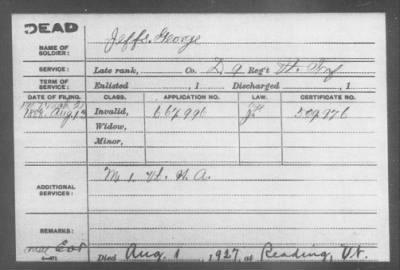 DEAD
NAME OF SOLDIER: Jeffs. George
SERVICE: Late rank, Co. D 9 Reg't Vt. Inf
TERM OF SERVICE: Enlisted , 1 Discharged , 1
DATE OF FILING. CLASS. APPLICATION NO. LAW. CERTIFICATE NO.
Aug 1 Invalid, 667.996 509976
Widow,
Minor,
ADDITIONAL SERVICES: M 1. Vt. H. A.
REMARKS:
Died Aug. 1, 1927, at Reading, Vt.